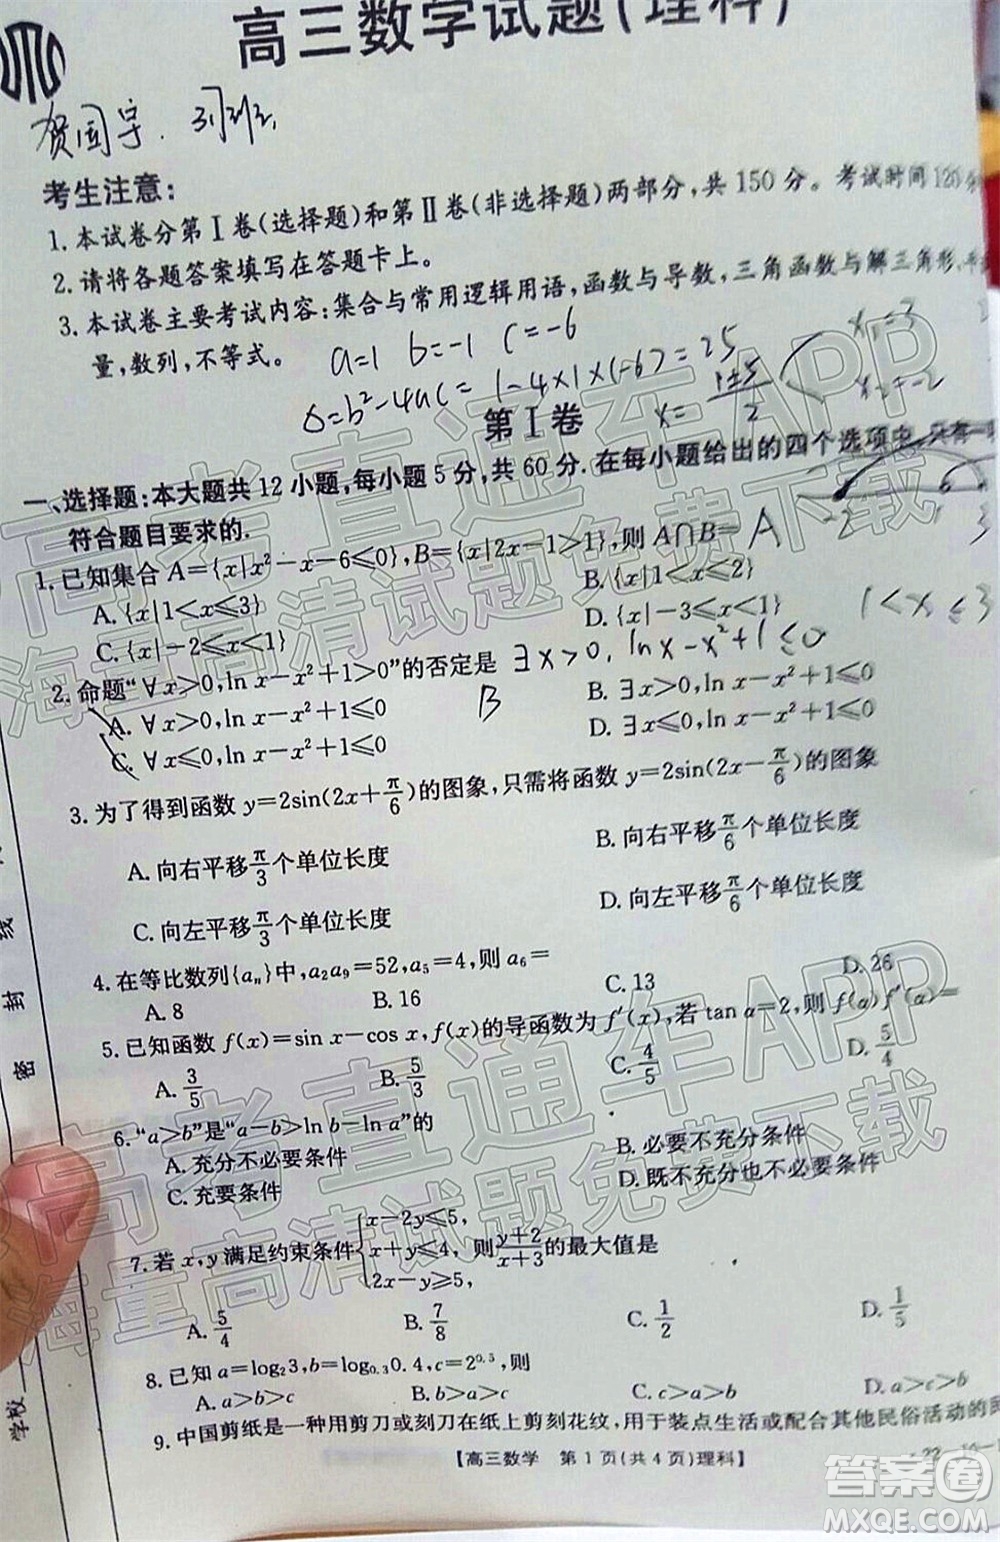 高三数学试题(理科)
贺国宇.
考生注意:
1. 本试卷分第Ⅰ卷(选择题)和第Ⅱ卷(非选择题)两部分,共150分。考试时间120分
2. 请将各题答案填写在答题卡上。
3. 本试卷主要考试内容:集合与常用逻辑用语,函数与导数,三角函数与解三角形,平
量,数列,不等式。
a=1 b=-1 c=-6
Δ=b²-4ac=1-4×1×(-6)=25
x=(1±5)/2
x=3
x=-2
第Ⅰ卷
一、选择题:本大题共12小题,每小题5分,共60分.在每小题给出的四个选项中,只有一
符合题目要求的.
-2 1 3
1. 已知集合A={x|x²-x-6≤0},B={x|2x-1>1},则A∩B= A
A. {x|1<x≤3} B. {x|1<x≤2}
C. {x|-2≤x<1} D. {x|-3≤x<1}
1<x≤3
∃x>0,lnx-x²+1≤0
2. 命题“∀x>0,ln x-x²+1>0”的否定是
B
A. ∀x>0,ln x-x²+1≤0 B. ∃x>0,ln x-x²+1≤0
C. ∀x≤0,ln x-x²+1≤0 D. ∃x≤0,ln x-x²+1≤0
3. 为了得到函数y=2sin(2x+π/6)的图象,只需将函数y=2sin(2x-π/6)的图象
A. 向右平移π/3个单位长度 B. 向右平移π/6个单位长度
C. 向左平移π/3个单位长度 D. 向左平移π/6个单位长度
4. 在等比数列{aₙ}中,a₂a₉=52,a₅=4,则a₆=
A. 8 B. 16 C. 13 D. 26
5. 已知函数f(x)=sin x-cos x,f(x)的导函数为f′(x),若tan α=2,则f(α)f′(α)=
A. 3/5 B. 5/3 C. 4/5 D. 5/4
6. “a>b”是“a-b>ln b-ln a”的
A. 充分不必要条件 B. 必要不充分条件
C. 充要条件 D. 既不充分也不必要条件
7. 若x,y满足约束条件{x-2y≤5, x+y≤4, 2x-y≥5,则(y+2)/(x+3)的最大值是
A. 5/4 B. 7/8 C. 1/2 D. 1/5
8. 已知a=log₂3,b=log₀.₃0.4,c=2⁰·⁵,则
A. a>b>c B. b>a>c C. c>a>b D. a>c>b
9. 中国剪纸是一种用剪刀或刻刀在纸上剪刻花纹,用于装点生活或配合其他民俗活动的民
【高三数学 第1页(共4页)理科】
线
封
密
学校
高考直通车APP
海量高清试题免费下载
高考直通车APP
海量高清试题免费下载
答案圈
MXQE.COM